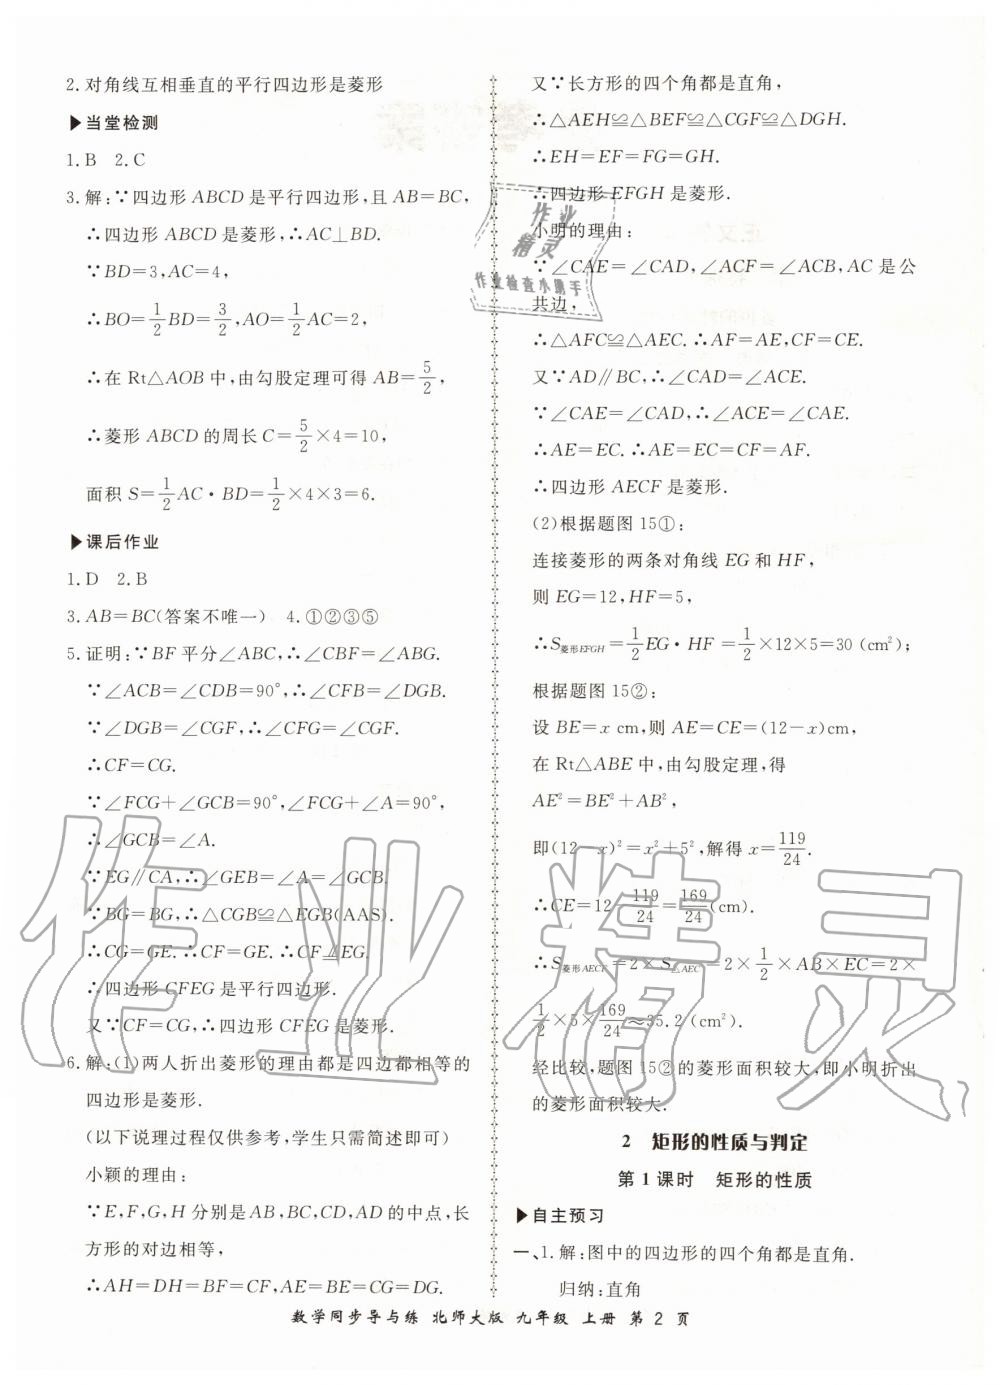 2.对角线互相垂直的平行四边形是菱形
▶当堂检测
1.B 2.C
3.解:∵四边形 ABCD 是平行四边形,且 AB=BC,
∴四边形 ABCD 是菱形,∴AC⊥BD.
∵BD=3,AC=4,
∴BO=1/2BD=3/2,AO=1/2AC=2,
∴在 Rt△AOB 中,由勾股定理可得 AB=5/2,
∴菱形 ABCD 的周长 C=5/2×4=10,
面积 S=1/2AC·BD=1/2×4×3=6.
▶课后作业
1.D 2.B
3.AB=BC(答案不唯一) 4.①②③⑤
5.证明:∵BF 平分∠ABC,∴∠CBF=∠ABG.
∵∠ACB=∠CDB=90°,∴∠CFB=∠DGB.
∵∠DGB=∠CGF,∴∠CFG=∠CGF.
∴CF=CG.
∵∠FCG+∠GCB=90°,∠FCG+∠A=90°,
∴∠GCB=∠A.
∵EG∥CA,∴∠GEB=∠A=∠GCB.
∵BG=BG,∴△CGB≌△EGB(AAS).
∴CG=GE.∴CF=GE.∴CF⫫EG.
∴四边形 CFEG 是平行四边形.
又∵CF=CG,∴四边形 CFEG 是菱形.
6.解:(1)两人折出菱形的理由都是四边都相等的
四边形是菱形.
(以下说理过程仅供参考,学生只需简述即可)
小颖的理由:
∵E,F,G,H 分别是AB,BC,CD,AD 的中点,长
方形的对边相等,
∴AH=DH=BF=CF,AE=BE=CG=DG.
又∵长方形的四个角都是直角,
∴△AEH≌△BEF≌△CGF≌△DGH.
∴EH=EF=FG=GH.
∴四边形 EFGH 是菱形.
小明的理由:
∵∠CAE=∠CAD,∠ACF=∠ACB,AC 是公
共边,
∴△AFC≌△AEC.∴AF=AE,CF=CE.
又∵AD∥BC,∴∠CAD=∠ACE.
∵∠CAE=∠CAD,∴∠ACE=∠CAE.
∴AE=EC.∴AE=EC=CF=AF.
∴四边形 AECF 是菱形.
(2)根据题图 15①:
连接菱形的两条对角线 EG 和 HF,
则 EG=12,HF=5,
∴S菱形EFGH=1/2EG·HF=1/2×12×5=30(cm²);
根据题图 15②:
设 BE=x cm,则 AE=CE=(12-x)cm,
在 Rt△ABE 中,由勾股定理,得
AE²=BE²+AB²,
即(12-x)²=x²+5²,解得 x=119/24.
∴CE=12-119/24=169/24(cm).
∴S菱形AECF=2×S△AEC=2×1/2×AB×EC=2×
1/2×5×169/24≈35.2(cm²).
经比较,题图 15②的菱形面积较大,即小明折出
的菱形面积较大.
2 矩形的性质与判定
第 1 课时 矩形的性质
▶自主预习
一、1.解:图中的四边形的四个角都是直角.
归纳:直角
数学同步导与练 北师大版 九年级 上册 第 2 页
作业
精灵
作业检查小助手
作业精灵